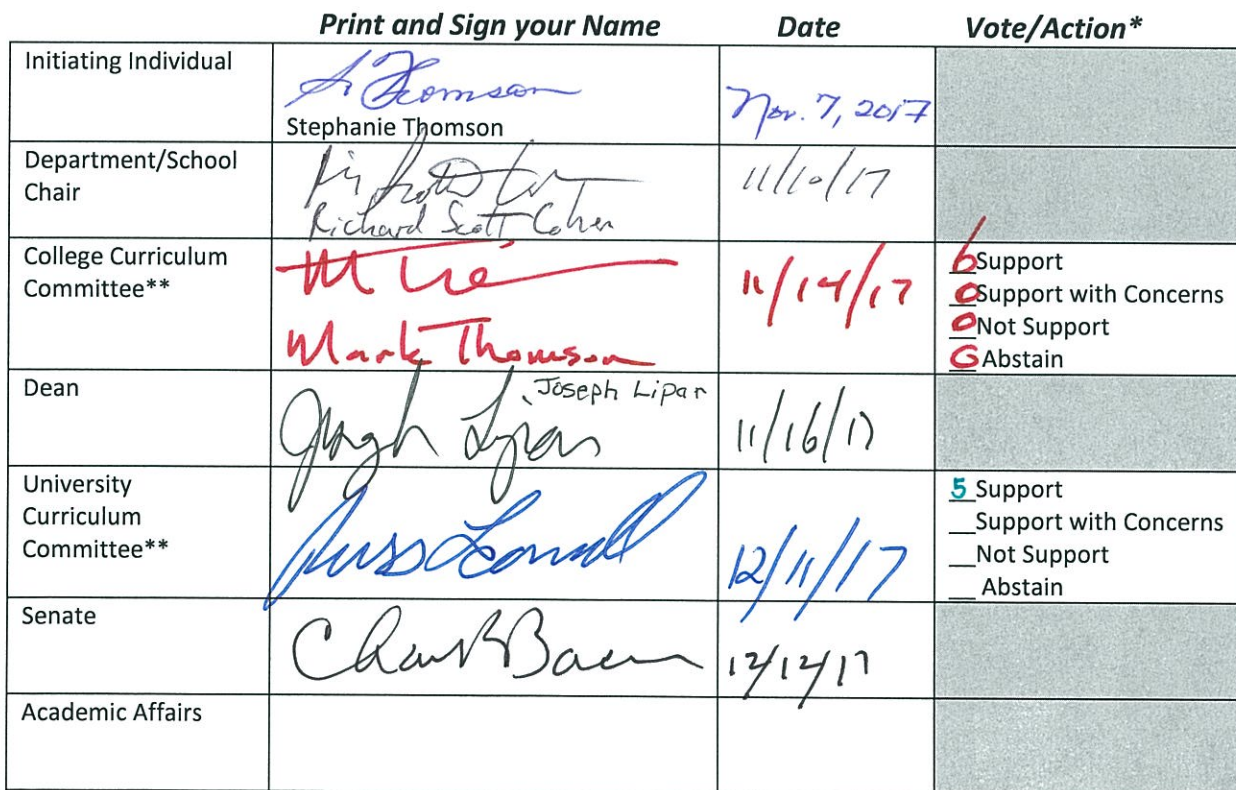 Print and Sign your Name Date Vote/Action*
Initiating Individual
S Thomson
Nov. 7, 2017
Stephanie Thomson
Department/School
Chair
11/10/17
Richard Scott Cohen
College Curriculum
Committee**
11/14/17
Mark Thomson
6 Support
0 Support with Concerns
0 Not Support
0 Abstain
Dean
Joseph Lipar
Joseph Lipar
11/16/17
University
Curriculum
Committee**
Russ Leonard
12/11/17
5 Support
__Support with Concerns
__Not Support
__ Abstain
Senate
12/12/17
Academic Affairs